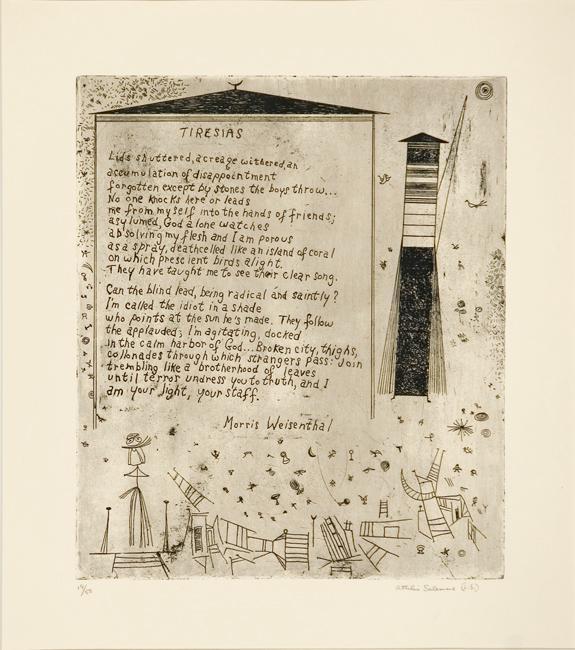 TIRESIAS
Lids shuttered, acreage withered, an
accumulation of disappointment
forgotten except by stones the boys throw...
No one knocks here or leads
me from myself into the hands of friends;
asylumed, God alone watches
absolving my flesh and I am porous
as a spray, deathcelled like an island of coral
on which prescient birds alight.
They have taught me to see their clear song.
Can the blind lead, being radical and saintly?
I'm called the idiot in a shade
who points at the sun he's made. They follow
the applauded; I'm agitating, docked
in the calm harbor of God... Broken city, thighs,
collonades through which strangers pass: Join
trembling like a brotherhood of leaves
until terror undress you to truth, and I
am your light, your staff.
Morris Weisenthal
Attilio Salemme